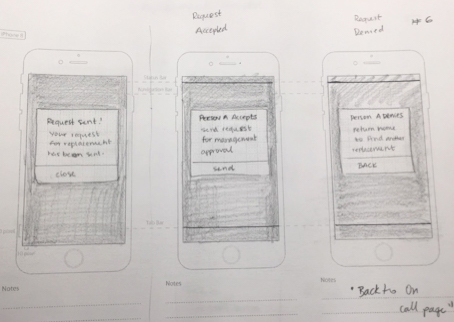 Request
Accepted
Request
Denied
iPhone 6
Status Bar
Navigation Bar
Request Sent!
Your request
for replacement
has been sent.
close
Person A Accepts
send request
for management
approval
send
Person A Denies
return home
to find another
replacement
BACK
Tab Bar
Notes
Notes
Notes
"Back to On
call page"